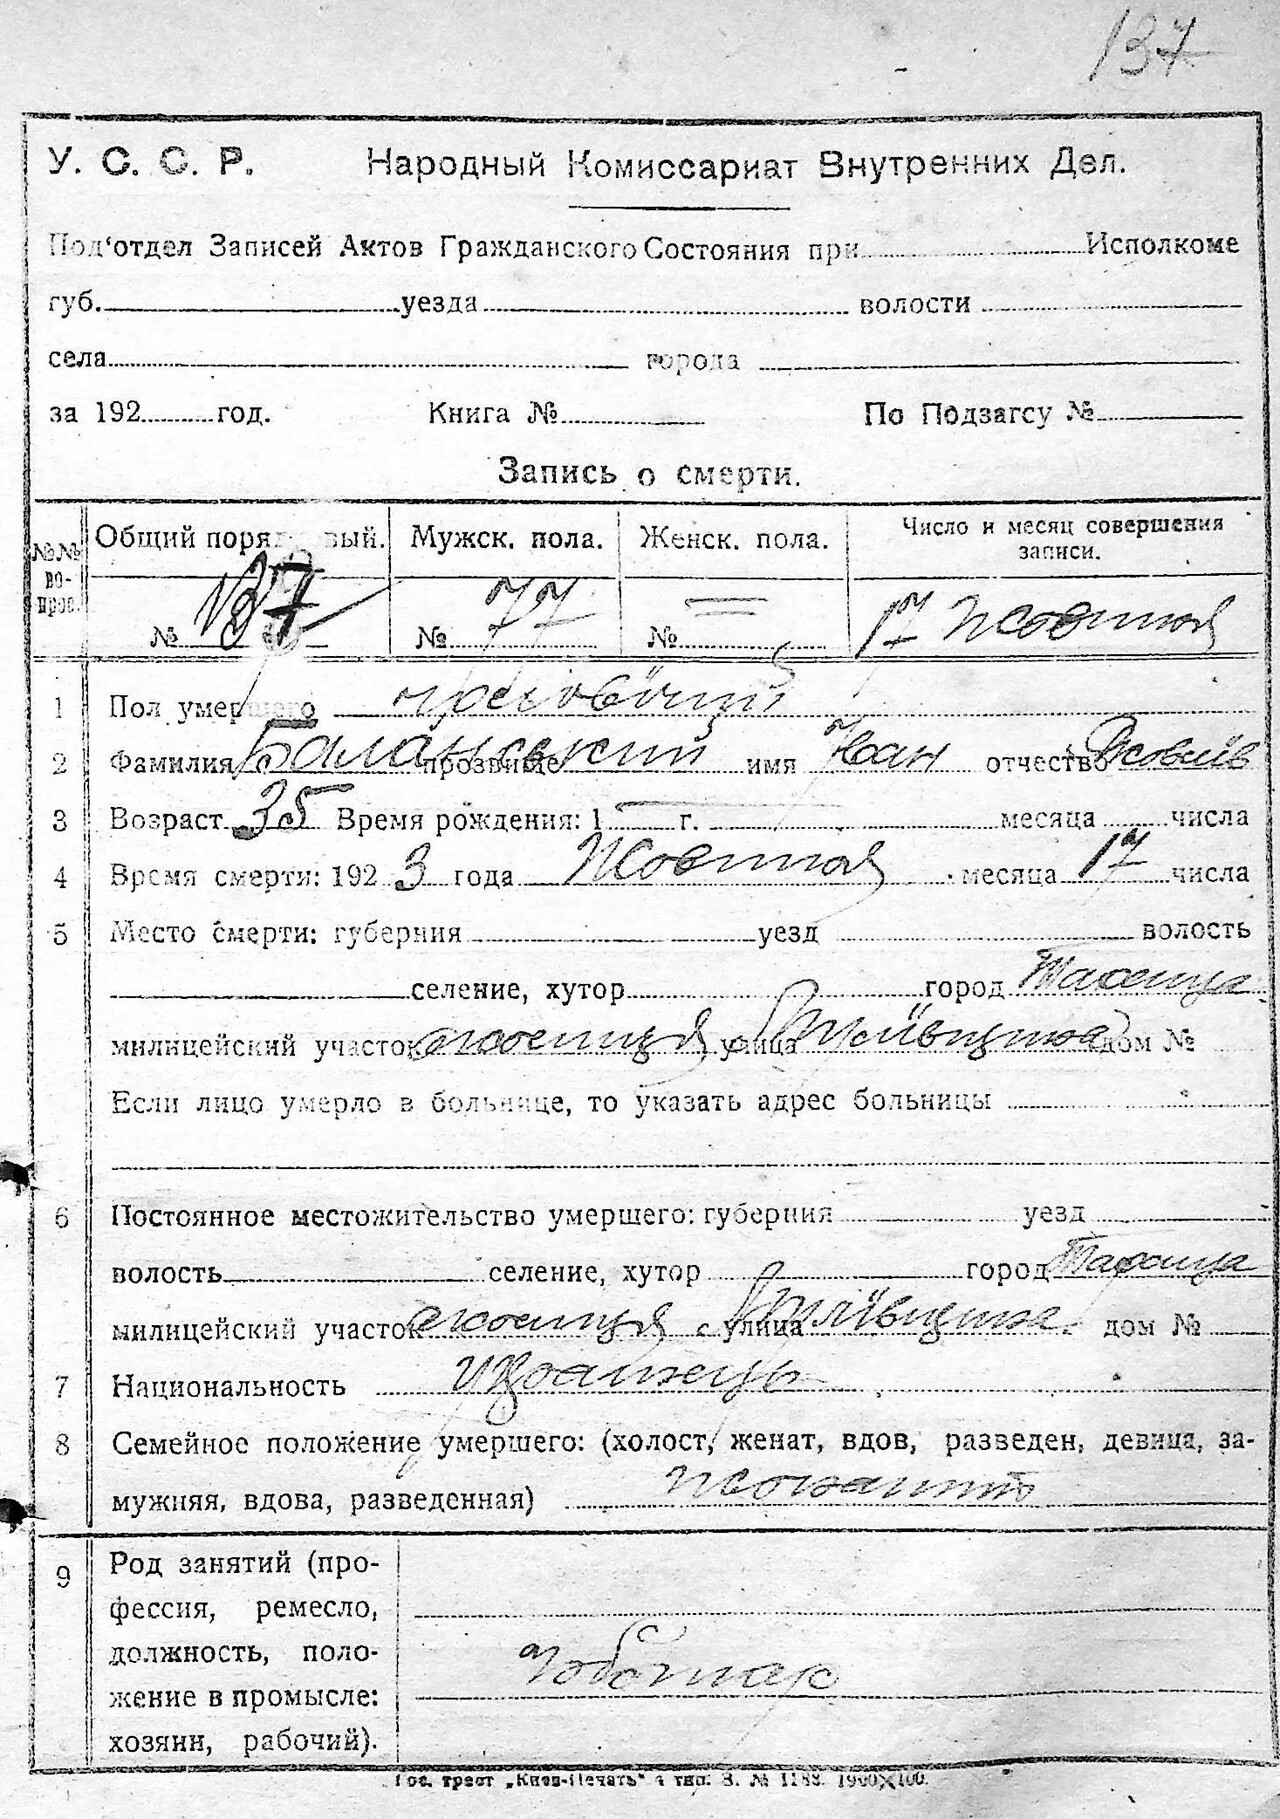 137
У. С. С. Р. Народный Комиссариат Внутренних Дел.
Под'отдел Записей Актов Гражданского Состояния при Исполкоме
губ. уезда волости
села города
за 192 год. Книга № По Подзагсу №
Запись о смерти.
№№ вопрос. Общий поряд вый. Мужск. пола. Женск. пола. Число и месяц совершения записи.
№ 137 № 77 № = 17 Жовтня
1 Пол умершего чоловічий
2 Фамилия Баланський прозвище имя Іван отчество Яковлів
3 Возраст 35 Время рождения: 1 г. месяца числа
4 Время смерти: 192 3 года Жовтня месяца 17 числа
5 Место смерти: губерния уезд волость
селение, хутор город Тараща
милицейский участок околиця улица дом №
Если лицо умерло в больнице, то указать адрес больницы
6 Постоянное местожительство умершего: губерния уезд
волость селение, хутор город Тараща
милицейский участок околиця улица дом №
7 Национальность українець
8 Семейное положение умершего: (холост, женат, вдов, разведен, девица, за-
мужняя, вдова, разведенная) жонатий
9 Род занятий (про-
фессия, ремесло,
должность, поло-
жение в промысле:
хозяин, рабочий).
чоботар
Гос. трест „Киев-Печать" 4 тип. З. № 1188. 1900×100.